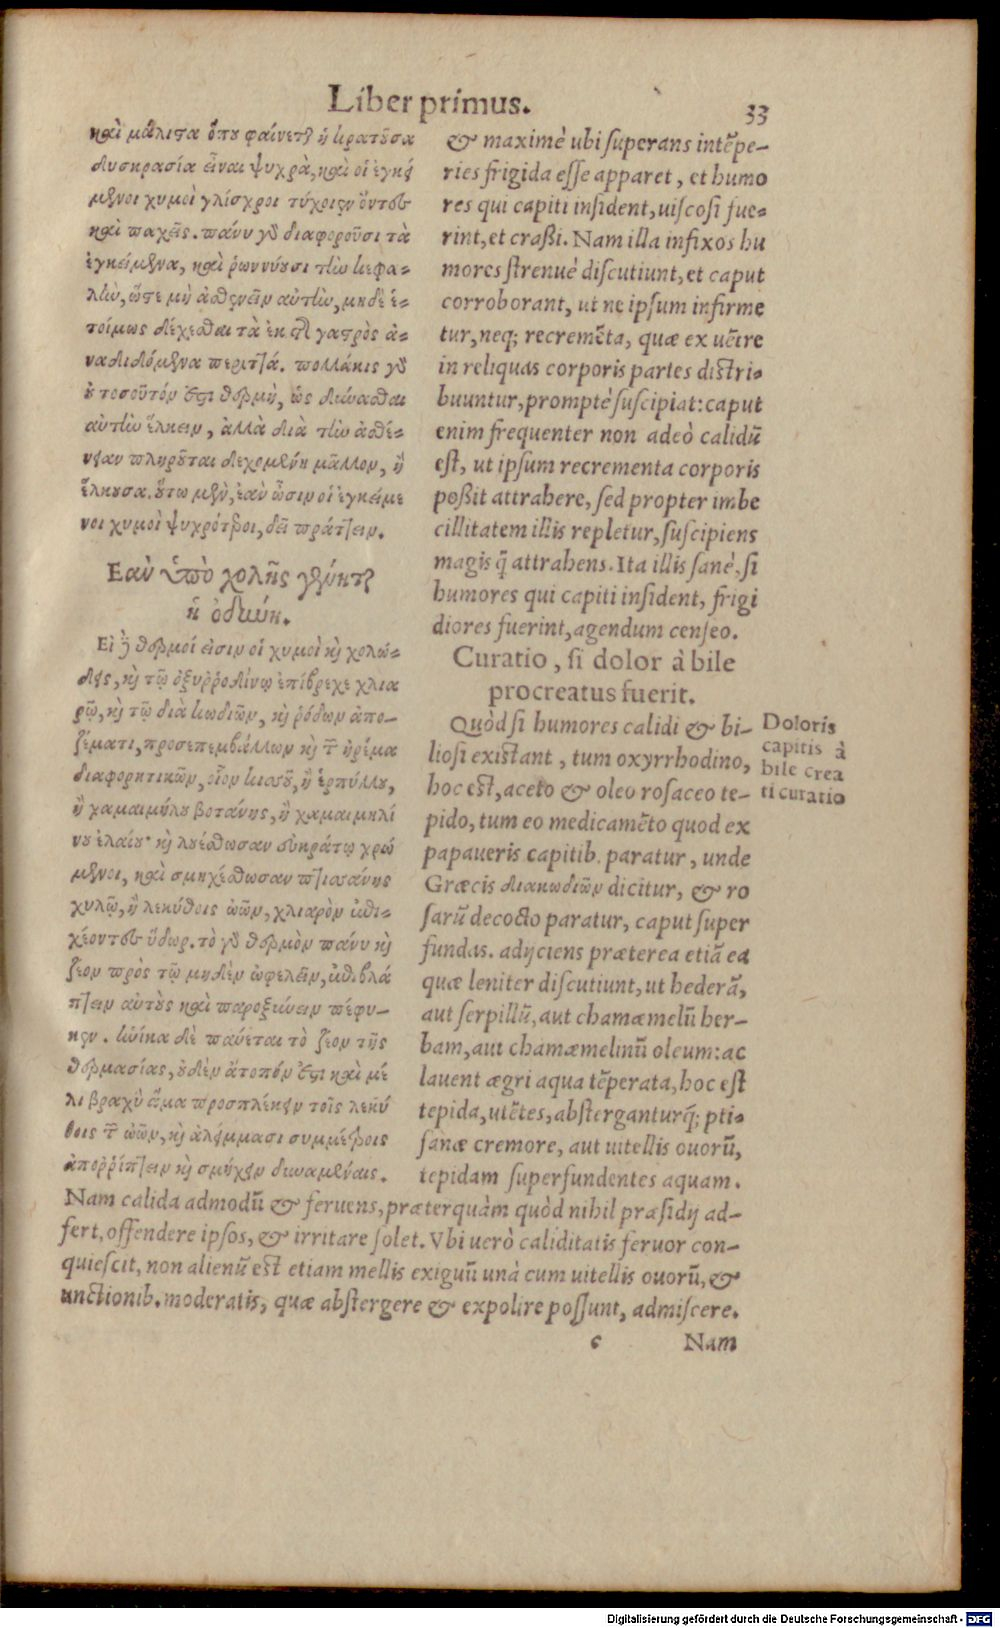 Liber primus.
33
καὶ μάλιστα ὅπου φαίνεται ἡ κρατοῦσα
δυσκρασία εἶναι ψυχρὰ, καὶ οἱ ἐγκεί
μενοι χυμοὶ γλίσχροι τύχοιεν ὄντες
καὶ παχεῖς. πάνυ γὰρ διαφοροῦσι τὰ
ἐγκείμενα, καὶ ῥωννύουσι τὴν κεφα-
λὴν, ὥστε μὴ ἀσθενεῖν αὐτὴν, μηδὲ ἑ-
τοίμως δέχεσθαι τὰ ἐκ τῆς γαστρὸς ἀ-
ναδιδόμενα περιττά. πολλάκις γὰρ
οὐ τοσοῦτόν ἐστι θερμὴ, ὡς δύνασθαι
αὐτὴν ἕλκειν, ἀλλὰ διὰ τὴν ἀσθέ-
νειαν πληροῦται δεχομένη μᾶλλον, ἢ
ἕλκουσα. οὕτω μὲν, ἐὰν ὦσιν οἱ ἐγκείμε
νοι χυμοὶ ψυχρότεροι, δεῖ πράττειν.
Εὰν ὑπὸ χολῆς γένηται
ἡ ὀδύνη.
Εἰ δὲ θερμοί εἰσιν οἱ χυμοὶ καὶ χολώ-
δεις, καὶ τῷ ὀξυρροδίνῳ ἐπίβρεχε χλια
ρῷ, καὶ τῷ διὰ κωδιῶν, καὶ ῥόδων ἀπο-
ζέματι, προσεπεμβάλλων καὶ τῶν ἠρέμα
διαφορητικῶν, οἷον κισσοῦ, ἢ ἑρπύλλου,
ἢ χαμαιμήλου βοτάνης, ἢ χαμαιμηλί
νου ἐλαίου· καὶ λουέσθωσαν εὐκράτῳ χρώ
μενοι, καὶ σμηχέσθωσαν πτισσάνης
χυλῷ, ἢ λεκύθοις ὠῶν, χλιαρὸν ἐπι-
χέοντες ὕδωρ. τὸ γὰρ θερμὸν πάνυ καὶ
ζέον πρὸς τῷ μηδὲν ὠφελεῖν, ἔτι βλά
πτειν αὐτοὺς καὶ παροξύνειν πέφυ-
κεν. ἡνίκα δὲ παύεται τὸ ζέον τῆς
θερμασίας, οὐδὲν ἄτοπόν ἐστι καὶ μέ
λι βραχὺ ἅμα προσπλέκειν τοῖς λεκύ
θοις τῶν ὠῶν, καὶ ἀλείμμασι συμμέτροις
ἀπορρίπτειν καὶ σμήχειν δυναμέναις.
& maximè ubi superans intẽpe-
ries frigida esse apparet, et humo
res qui capiti insident, uiscosi fue-
rint, et crassi. Nam illa infixos hu
mores strenuè discutiunt, et caput
corroborant, ut ne ipsum infirme
tur, neq; recremẽta, quæ ex uẽtre
in reliquas corporis partes distri-
buuntur, promptè suscipiat: caput
enim frequenter non adeò calidũ
est, ut ipsum recrementa corporis
possit attrahere, sed propter imbe
cillitatem illis repletur, suscipiens
magis q̃ attrahens. Ita illis sanè, si
humores qui capiti insident, frigi
diores fuerint, agendum censeo.
Curatio, si dolor à bile
procreatus fuerit.
Quòd si humores calidi & bi-
liosi existant, tum oxyrrhodino,
hoc est, aceto & oleo rosaceo te-
pido, tum eo medicamẽto quod ex
papaueris capitib. paratur, unde
Græcis διακωδιῶν dicitur, & ro
sarũ decocto paratur, caput super
fundas. adijciens præterea etiã ea
quæ leniter discutiunt, ut hederã,
aut serpillũ, aut chamæmelũ her-
bam, aut chamæmelinũ oleum: ac
lauent ægri aqua tẽperata, hoc est
tepida, utẽtes, abstergantúrq; pti-
sanæ cremore, aut uitellis ouorũ,
tepidam superfundentes aquam.
Doloris
capitis à
bile crea
ti curatio
Nam calida admodũ & feruens, præterquàm quòd nihil præsidij ad-
fert, offendere ipsos, & irritare solet. Vbi uerò caliditatis feruor con-
quiescit, non alienũ est etiam mellis exiguũ unà cum uitellis ouorũ, &
unctionib. moderatis, quæ abstergere & expolire possunt, admiscere.
c
Nam
Digitalisierung gefördert durch die Deutsche Forschungsgemeinschaft - DFG